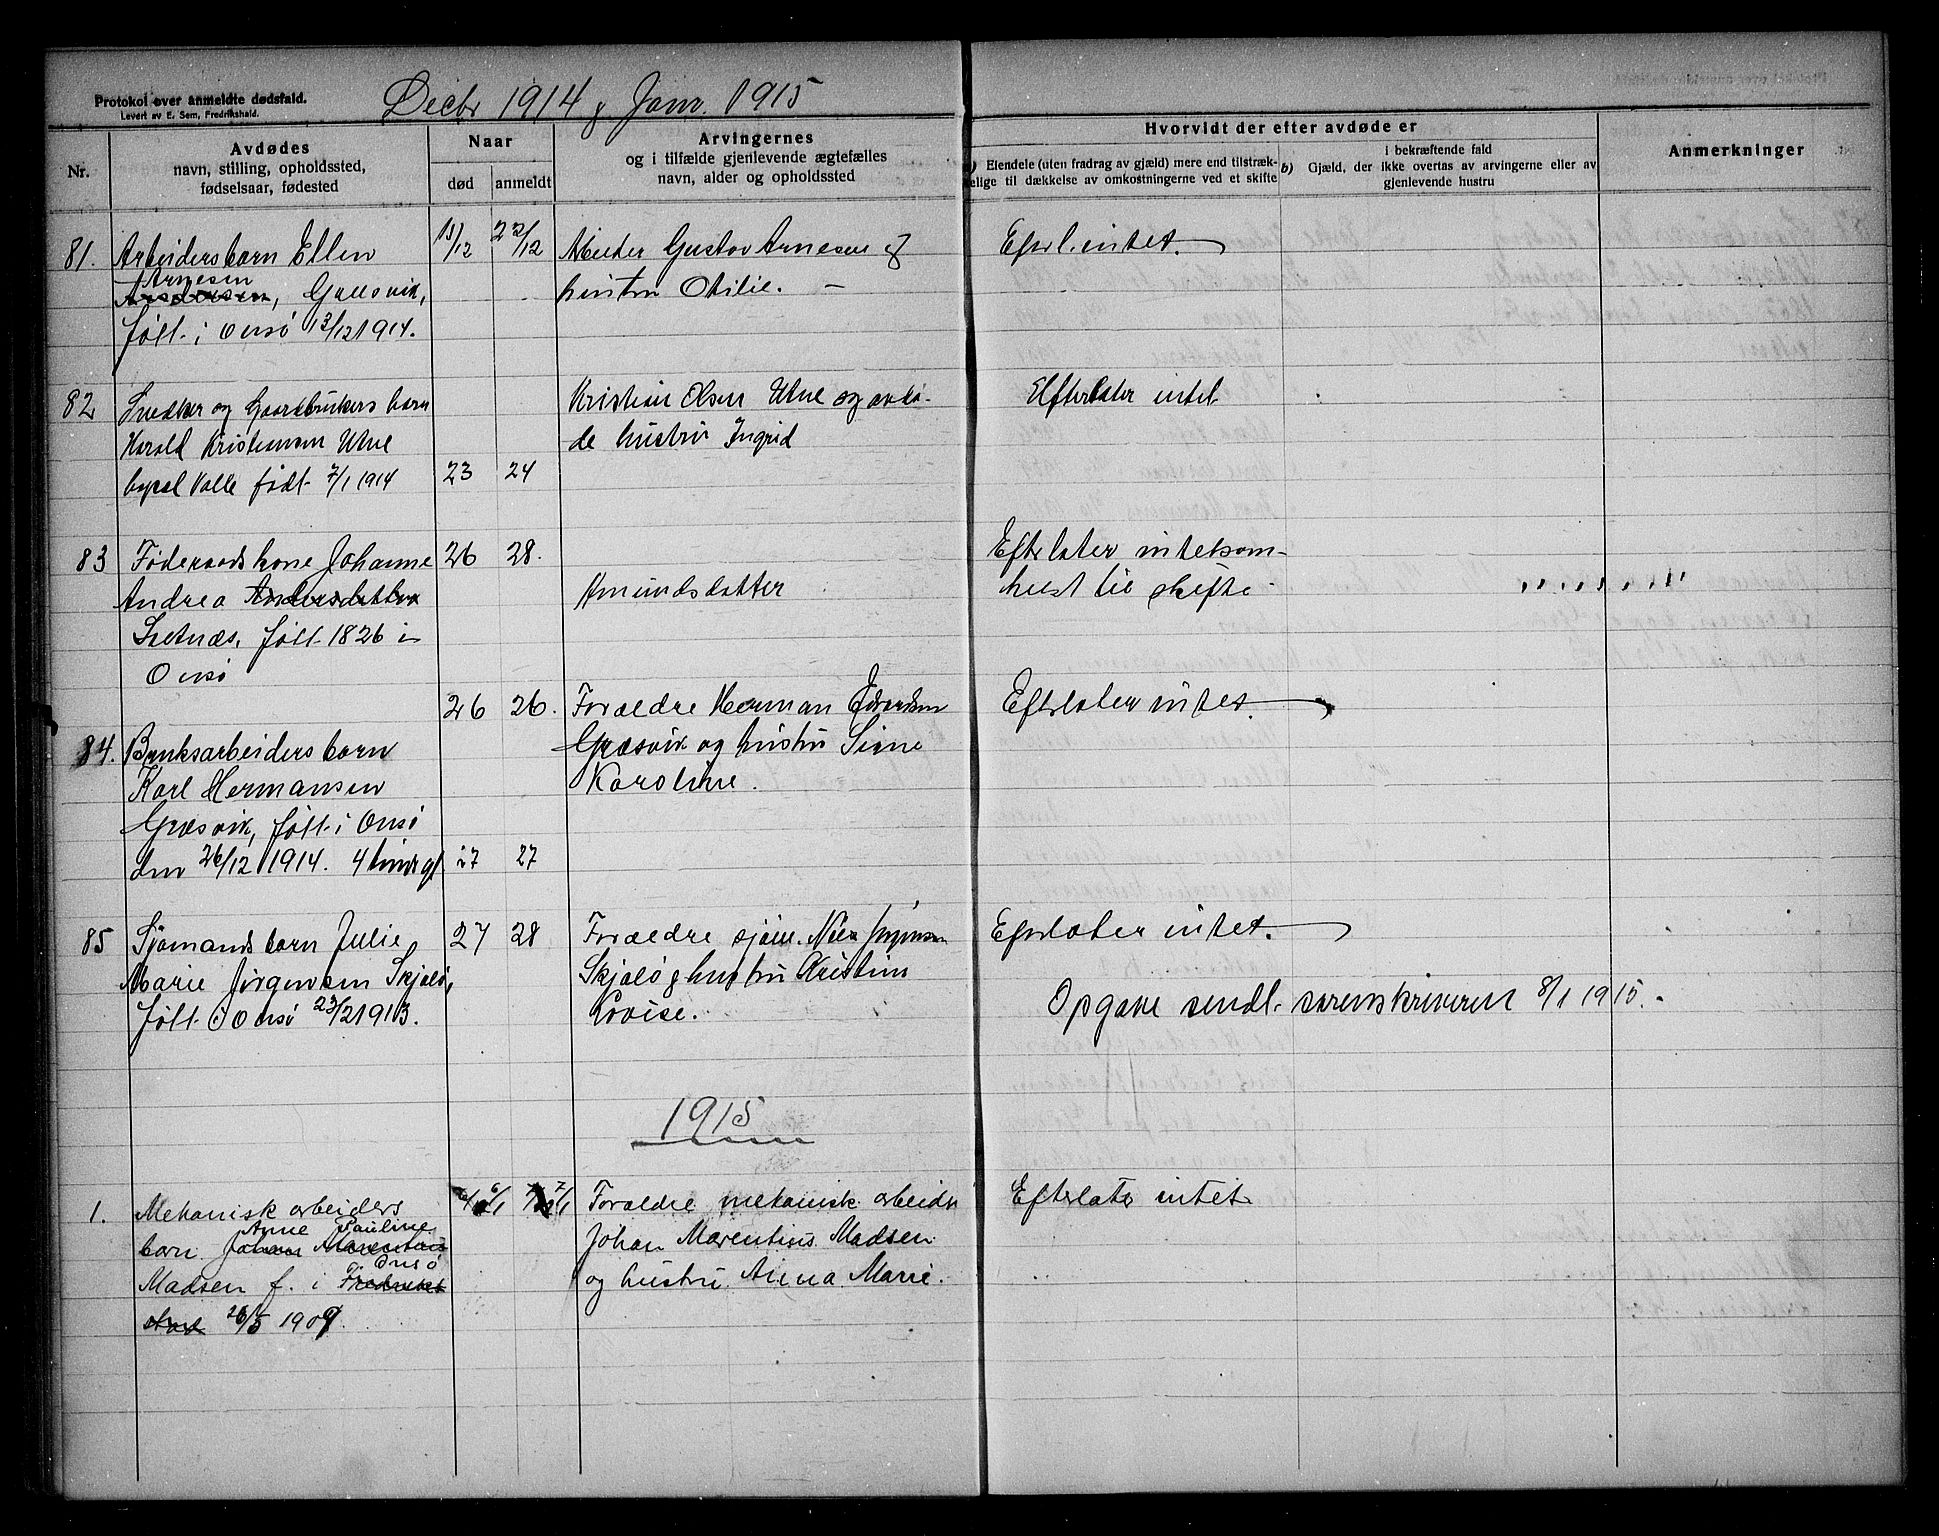 Protokol over anmeldte dødsfald.
Levert av E. Sem, Fredrikshald.
Decbr 1914 & Janr. 1915
Nr.
Avdødes
navn, stilling, opholdssted,
fødselsaar, fødested
Naar
død
anmeldt
Arvingernes
og i tilfælde gjenlevende ægtefælles
navn, alder og opholdssted
Hvorvidt der efter avdøde er
a) Eiendele (uten fradrag av gjæld) mere end tilstræk-
kelige til dækkelse av omkostningerne ved et skifte
i bekræftende fald
b) Gjæld, der ikke overtas av arvingerne eller av
gjenlevende hustru
Anmerkninger
81. Arbeidersbarn Ellen
Arnesen
Græsvik,
født i Onsø 13/12 1914.
15/12 22/12
Arbeider Gustav Arnesen og
hustru Otilie. —
Efterl. intet.
82 Snedker og Gaardbrukers barn
Harald Kristiansen Utne
bopæl Valle født 7/1 1914
23 24
Kristian Olsen Utne og avdø-
de hustru Ingrid
Efterlater intet
83 Føderaadskone Johanne
Andrea Andersdatter
født 1826 i
Onsø
26 28.
Amundsdatter
Efterlater intetsom-
helst til skifte
84. Bruksarbeiders barn
Karl Hermansen
Græsvik, født i Onsø
den 26/12 1914. 4 timer gl
26 26.
27 27
Forældre Herman Edvardsen
Græsvik og hustru Signe
Karoline.
Efterlater intet.
85 Sjømands barn Julie
Marie Jørgensen Skjælø,
født i Onsø 23/2 1913.
27 28
Forældre sjøm. Nils Jørgensen
Skjælø & hustru Kristine
Lovise.
Efterlater intet.
Opgave sendt sorenskriveren 8/1 1915.
1915
1. Mekanisk arbeiders
Anne Pauline
barn Johan Marentius
Onsø
Madsen f. i Fredrikstad
26/5 1909.
6/1 7/1
Forældre mekanisk arbeider
Johan Marentius Madsen
og hustru Anna Marie.
Efterlater intet